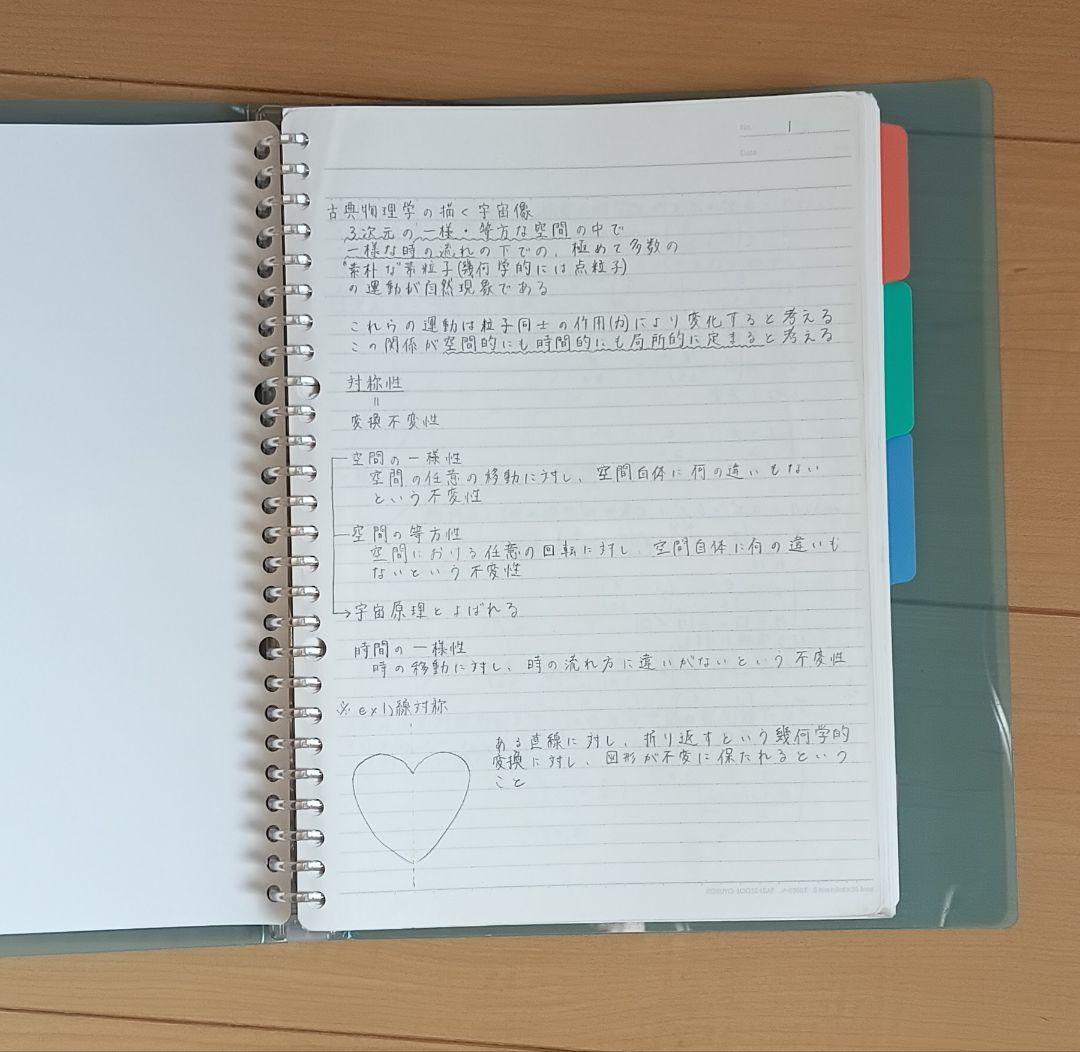 No. 1
Date
古典物理学の描く宇宙像
3次元の一様・等方な空間の中で
一様な時の流れの下での、極めて多数の
"素朴な"素粒子(幾何学的には点粒子)
の運動が自然現象である
これらの運動は粒子同士の作用(力)により変化すると考える
この関係が空間的にも時間的にも局所的に定まると考える
対称性
=
変換不変性
空間の一様性
空間の任意の移動に対し、空間自体に何の違いもない
という不変性
空間の等方性
空間における任意の回転に対し、空間自体に何の違いも
ないという不変性
→宇宙原理とよばれる
時間の一様性
時の移動に対し、時の流れ方に違いがないという不変性
※ex1)線対称
ある直線に対し、折り返すという幾何学的
変換に対し、図形が不変に保たれるという
こと